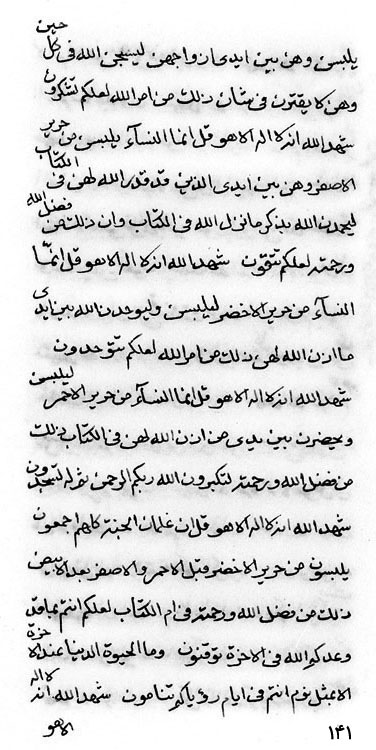 حين
يلبسن وهن بين ايدي ازواجهن ليسبحن الله في كل
وهن لا يقترن في شان ذلك من امر الله لعلكم تشكرون
شهد الله انه لا اله الا هو قل انما النسآء يلبسن من حرير
الاصفر وهن بين ايدي الذين قد قدر الله لهن في الكتاب
ليحمدن الله بذكر ما نزل الله في الكتاب وان ذلك من فضل الله
ورحمته لعلكم تتقون شهد الله انه لا اله الا هو قل انما
النسآء من حرير الاخضر ليلبسن وليوحدن الله بين ايدي
ما اذن الله لهن ذلك من امر الله لعلكم توحدون
شهد الله انه لا اله الا هو قل انما النسآء من حرير الاحمر ليلبسن
ويحضرن بين يدي من اذن الله لهن في الكتاب ذلك
من فضل الله ورحمته لتكبرون الله ربكم الرحمن ثم له لتسجدون
شهد الله انه لا اله الا هو قل ان غلمان الجنة كلهم اجمعون
يلبسون من حرير الاخضر قبل الاحمر والاصفر بعد الابيض
ذلك من فضل الله ورحمته في ام الكتاب لعلكم انتم بما قد
وعدكم الله في الاخرة توقنون وما الحيوة الدنيا عند الاخرة
الا بمثل نوم انتم في ايام رؤياكم تنامون شهد الله انه لا اله
الا هو
۱۴۱